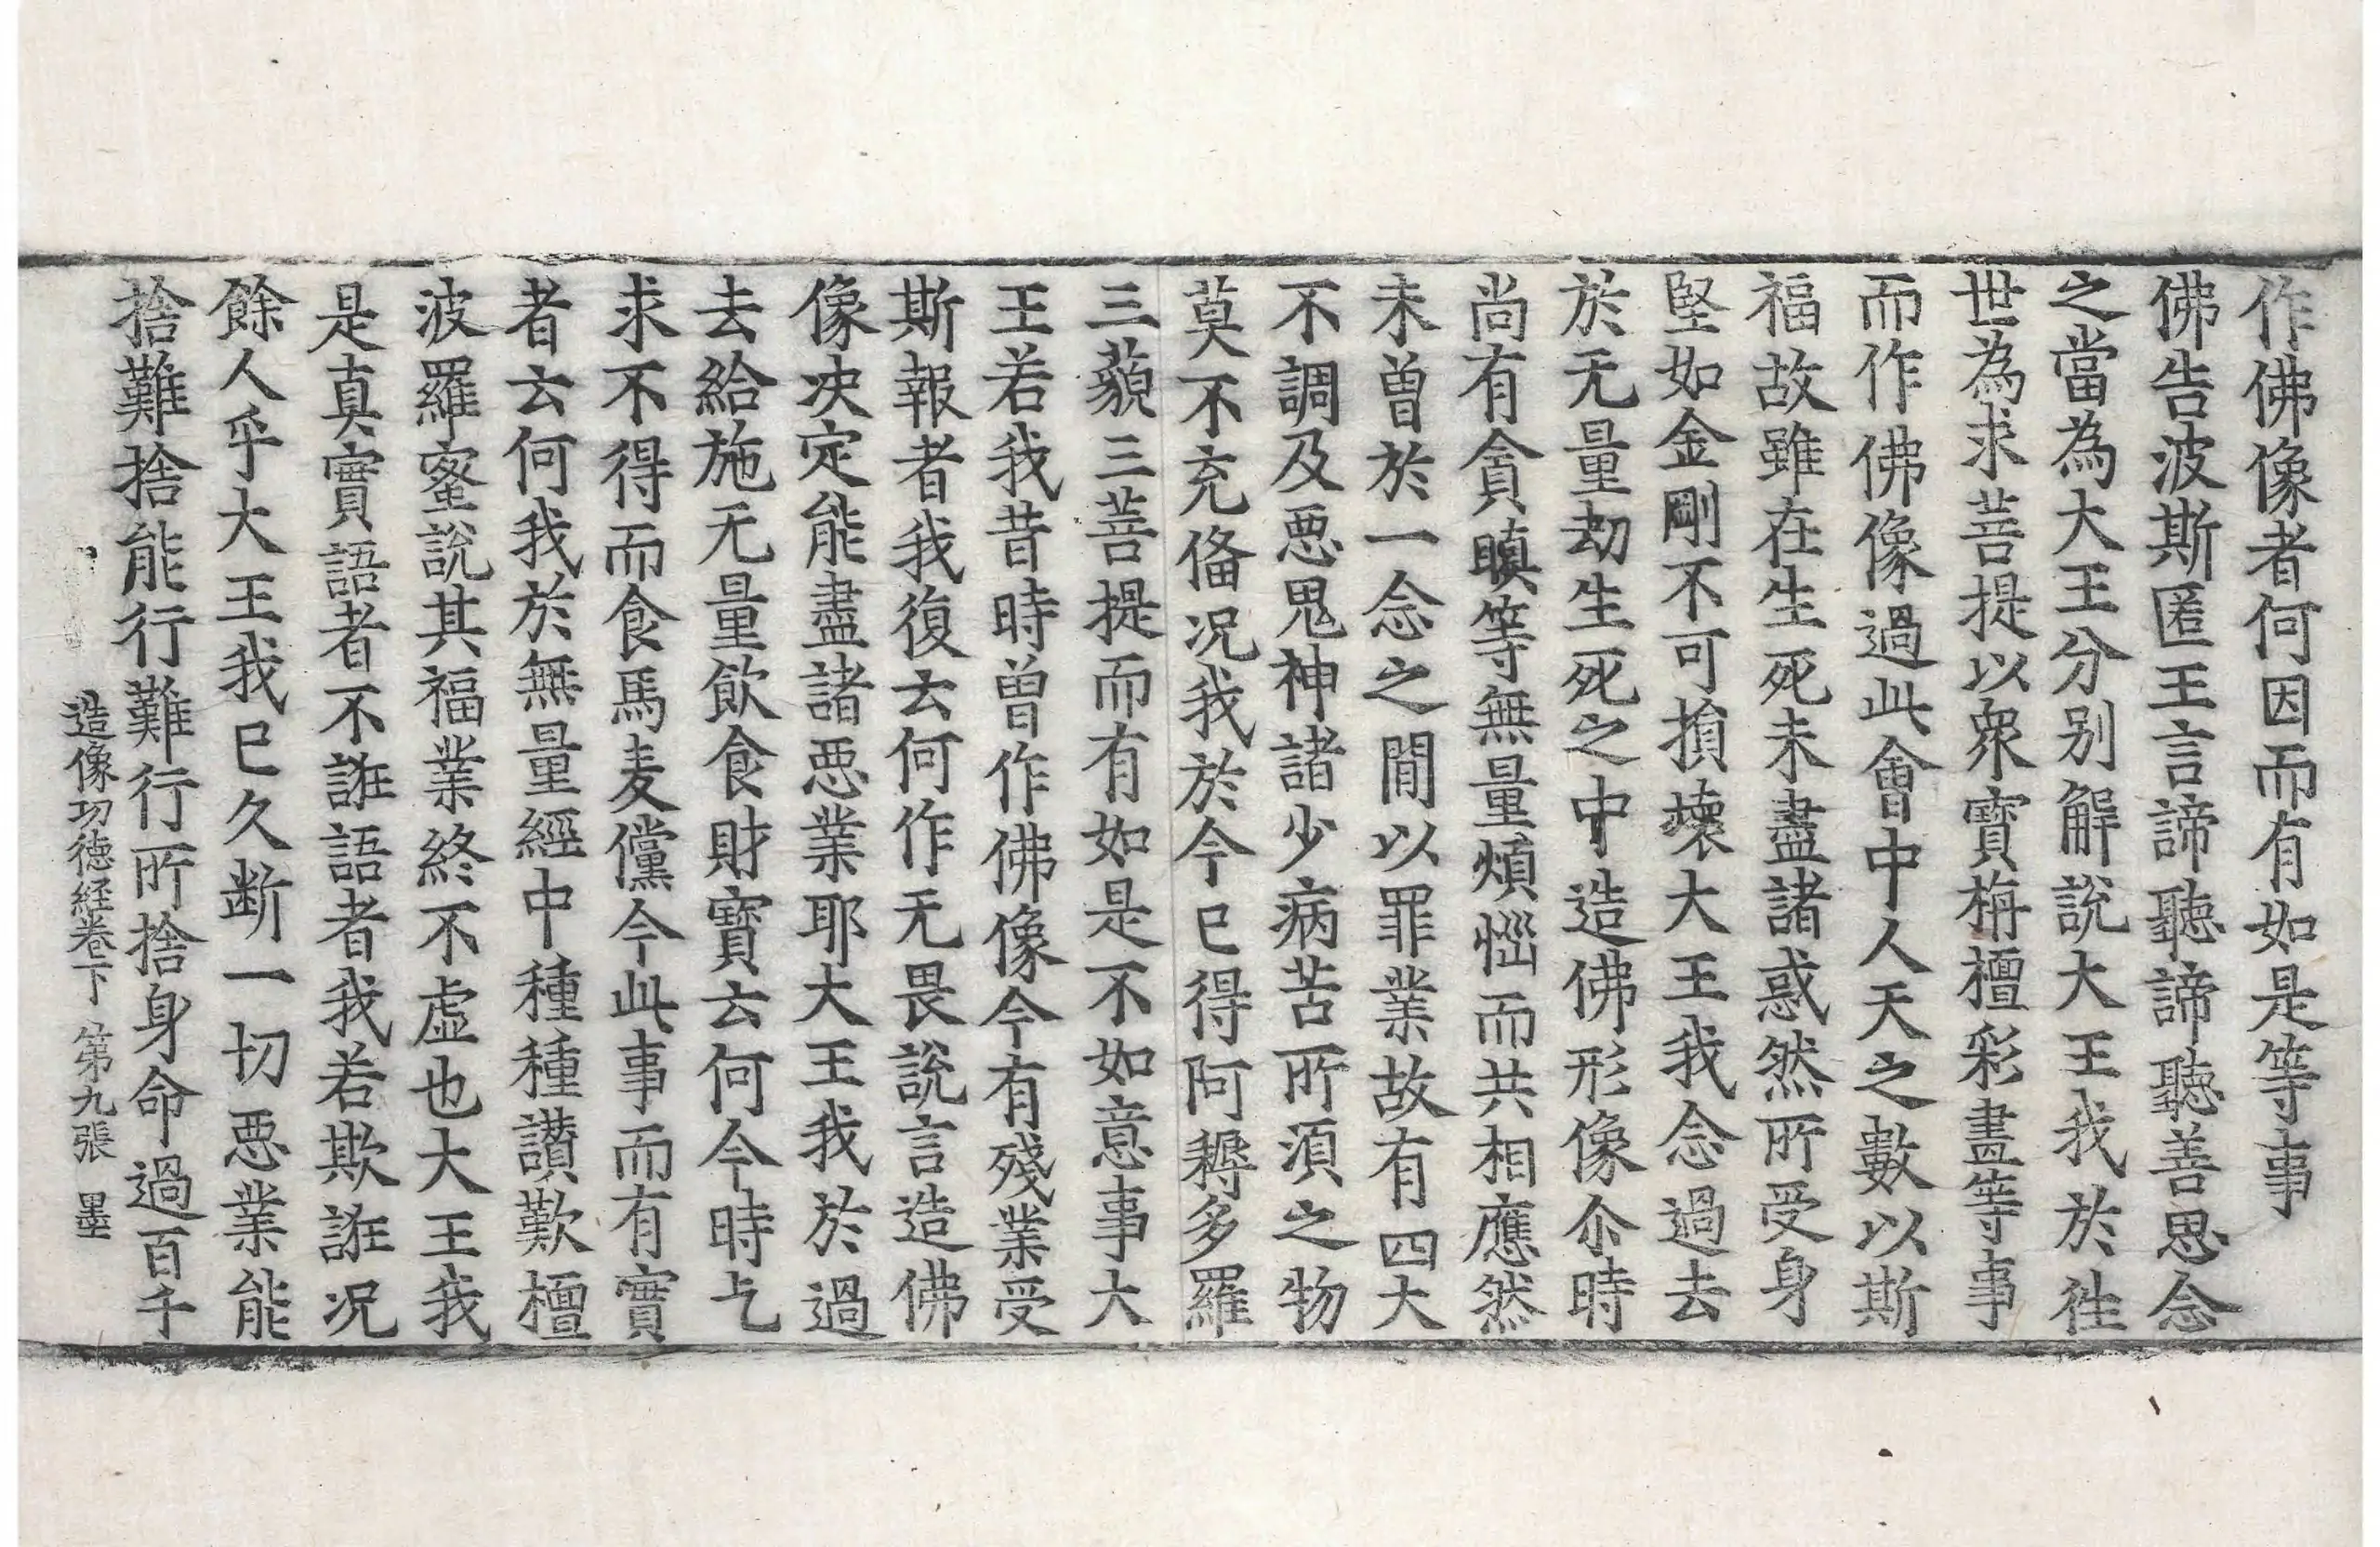 作佛像者何因而有如是等事
佛告波斯匿王言諦聽諦聽善思念
之當為大王分別解說大王我於往
世為求菩提以衆寶栴檀彩畫等事
而作佛像過此會中人天之數以斯
福故雖在生死未盡諸惑然所受身
堅如金剛不可損壞大王我念過去
於无量劫生死之中造佛形像尒時
尚有貪瞋等無量煩惱而共相應然
未曾於一念之閒以罪業故有四大
不調及惡鬼神諸少病苦所須之物
莫不充俻况我於今已得阿耨多羅
三藐三菩提而有如是不如意事大
王若我昔時曾作佛像今有殘業受
斯報者我復云何作无畏說言造佛
像决定能盡諸惡業耶大王我於過
去給施无量飲食財寶云何今時乞
求不得而食馬麦儻今此事而有實
者云何我於無量經中種種讃歎檀
波羅蜜說其福業終不虛也大王我
是真實語者不誑語者我若欺誑况
餘人乎大王我已久断一切惡業能
捨難捨能行難行所捨身命過百千
造像功德経卷下 第九張 墨